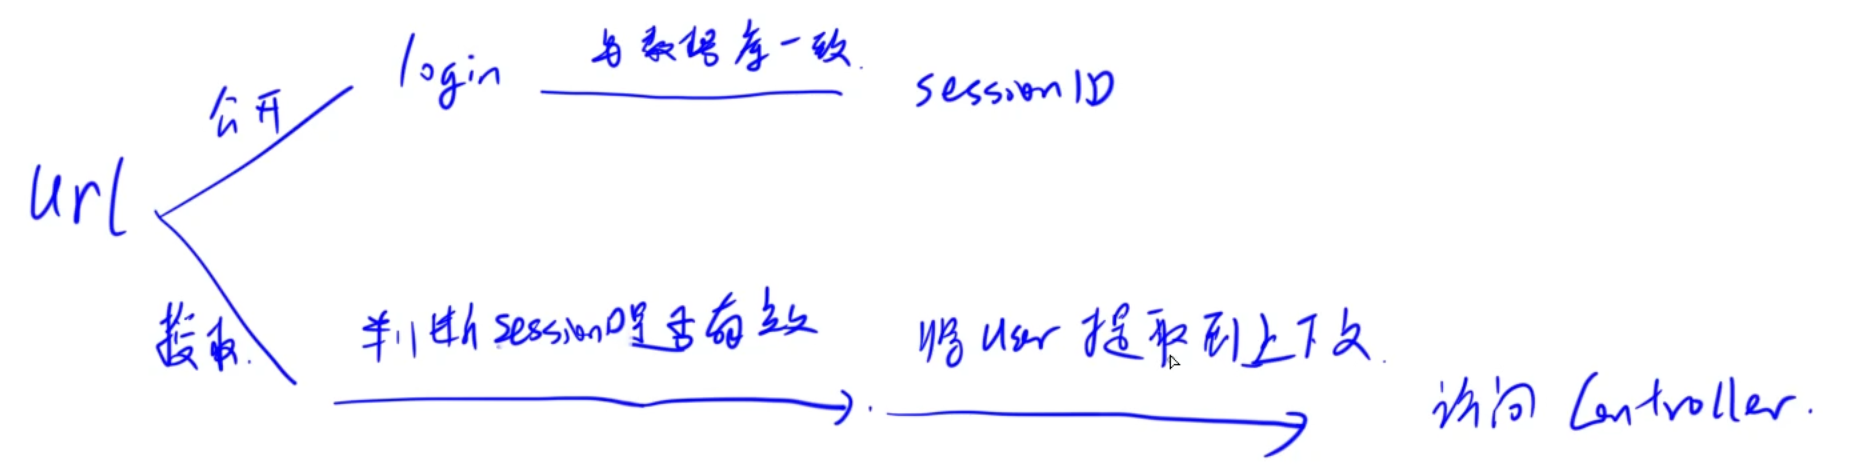 公开 login 与数据库一致. sessionID
url
授权. 判断sessionID是否有效 将user提取到上下文.
访问 Controller.